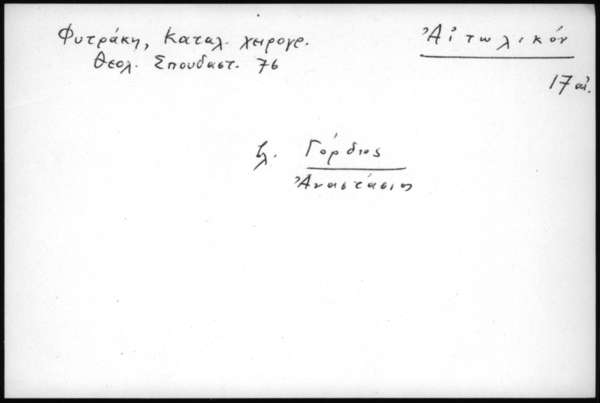 Φυτράκη, Καταλ. χειρογρ.
Θεολ. Σπουδαστ. 76
Αἰτωλικόν
17 αἰ.
βλ. Γόρδιος
Ἀναστάσιος